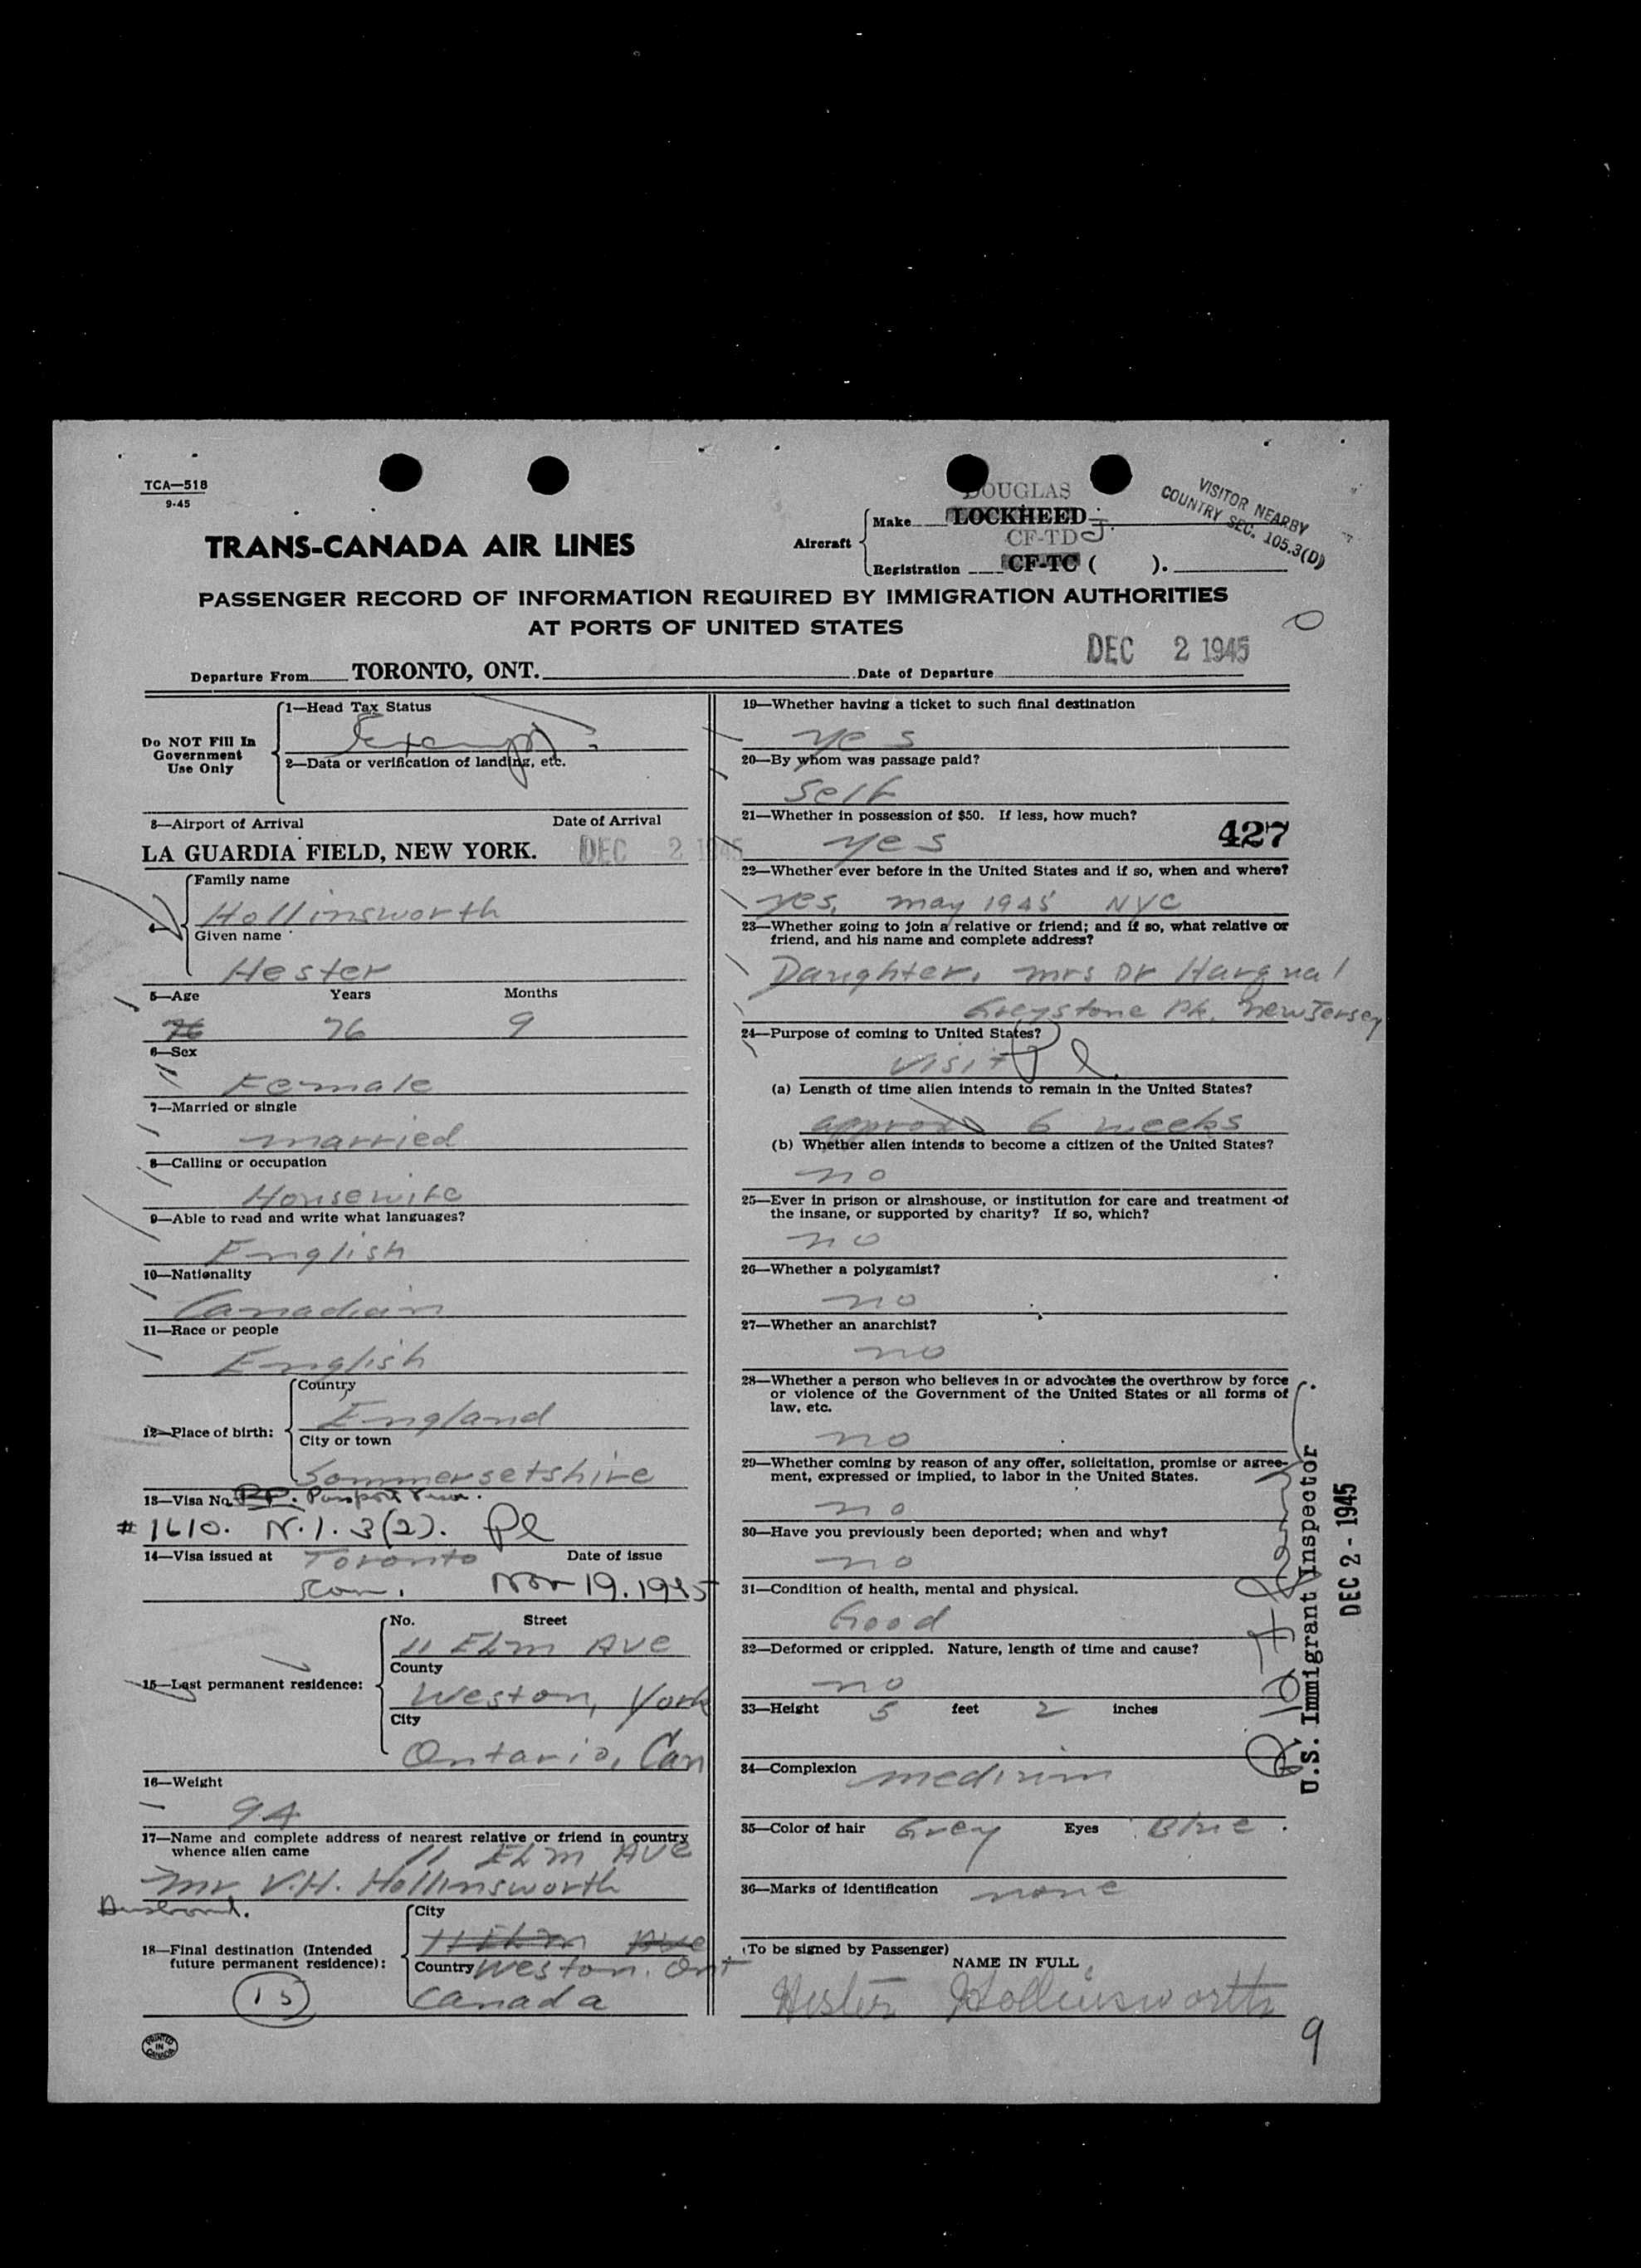 TCA—518
9-45
DOUGLAS
VISITOR NEARBY
COUNTRY SEC. 105.3(D)
Make LOCKHEED J.
TRANS-CANADA AIR LINES
Aircraft
CF-TD
Registration CF-TC ( ).
PASSENGER RECORD OF INFORMATION REQUIRED BY IMMIGRATION AUTHORITIES
AT PORTS OF UNITED STATES
DEC 2 1945
Departure From TORONTO, ONT. Date of Departure
Do NOT Fill In
Government
Use Only
1—Head Tax Status
Exempt
2—Data or verification of landing, etc.
3—Airport of Arrival Date of Arrival
LA GUARDIA FIELD, NEW YORK. DEC 2 1945
Family name
Hollinsworth
Given name
Hester
5—Age Years Months
76 76 9
6—Sex
Female
7—Married or single
married
8—Calling or occupation
Housewife
9—Able to read and write what languages?
English
10—Nationality
Canadian
11—Race or people
English
12—Place of birth:
Country
England
City or town
Sommersetshire
13—Visa No. PP. Passport
#1610. N.I. 3(2). Pl
14—Visa issued at Toronto Date of issue
Nov 19. 1945
15—Last permanent residence:
No. Street
11 Elm Ave
County
Weston, York
City
Ontario, Can
16—Weight
94
17—Name and complete address of nearest relative or friend in country
whence alien came 11 Elm Ave
Mr V.H. Hollinsworth
Husband.
18—Final destination (Intended
future permanent residence):
City
11 Elm Ave
Country Weston. Ont
Canada
15
PRINTED
IN
CANADA
19—Whether having a ticket to such final destination
yes
20—By whom was passage paid?
Self
21—Whether in possession of $50. If less, how much?
yes 427
22—Whether ever before in the United States and if so, when and where?
yes, may 1945 NYC
23—Whether going to join a relative or friend; and if so, what relative or
friend, and his name and complete address?
Daughter, mrs Dr
Greystone Pk, New Jersey
24—Purpose of coming to United States?
visit Pl
(a) Length of time alien intends to remain in the United States?
approx 6 weeks
(b) Whether alien intends to become a citizen of the United States?
no
25—Ever in prison or almshouse, or institution for care and treatment of
the insane, or supported by charity? If so, which?
no
26—Whether a polygamist?
no
27—Whether an anarchist?
no
28—Whether a person who believes in or advocates the overthrow by force
or violence of the Government of the United States or all forms of
law, etc.
no
29—Whether coming by reason of any offer, solicitation, promise or agree-
ment, expressed or implied, to labor in the United States.
no
30—Have you previously been deported; when and why?
no
31—Condition of health, mental and physical.
Good
32—Deformed or crippled. Nature, length of time and cause?
no
33—Height 5 feet 2 inches
34—Complexion medium
35—Color of hair Grey Eyes Blue.
36—Marks of identification none
(To be signed by Passenger)
NAME IN FULL
Hester Hollinsworth
9
U.S. Immigrant Inspector
DEC 2 - 1945